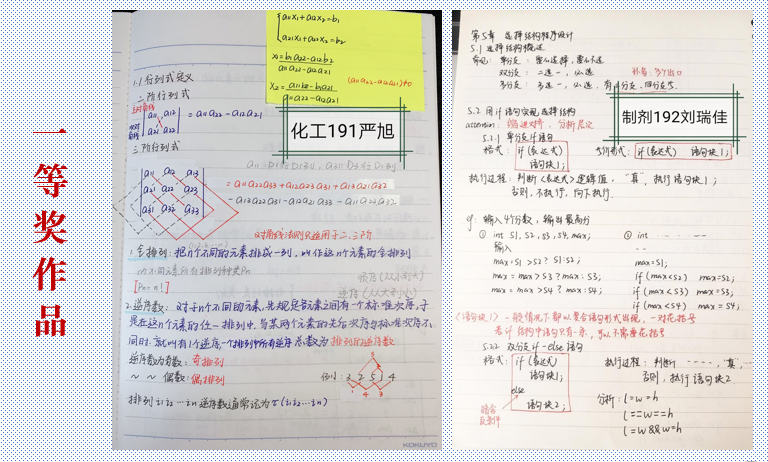 一等奖作品
a11x1+a12x2=b1
a21x1+a22x2=b2
1.1 行列式定义
二阶行列式
a11 a12
a21 a22
=a11a22-a12a21
化工191严旭
三阶行列式
a11 a12 a13
a21 a22 a23
a31 a32 a33
=a11a22a33+a12a23a31+a13a21a32
-a13a22a31-a12a21a33-a11a23a32
对角线法则只适用于二、三阶
1.全排列:把n个不同的元素排成一列,叫作这n个元素的全排列
n个不同元素所有排列种类Pn
[Pn=n!]
顺序(从小到大)
逆序(从大到小)
2.逆序数:对于n个不同的元素,先规定各元素之间有一个标准次序,于
是在这n个元素的任一排列中,当某两个元素的先后次序与标准次序不
同时,就叫有1个逆序,一个排列中所有逆序总数为排列的逆序数
逆序数为奇数:奇排列
~ ~ 偶数:偶排列
例: 3 2 5 1 4
排列i1i2…in逆序数通常记为τ(i1i2…in)
KOKUYO
第5章 选择结构程序设计
5.1 选择结构概述
单分支:要么选择,要么不选
双分支:二选一,必选
多分支:多选一,必选
制剂192刘瑞佳
5.2 用if语句实现选择结构
attention:缩进对齐,分析层次
5.2.1 单分支if语句
格式: if(表达式)
语句块1;
if(表达式) 语句块1;
执行过程:判断<表达式>逻辑值,"真",执行语句块1;
否则,不执行,向下执行.
eg. 输入4个分数,输出最高分
① int S1,S2,S3,S4,max;
输入
max=S1>S2?S1:S2;
max=max>S3?max:S3;
max=max>S4?max:S4;
② int
max=S1;
if(max<S2) max=S2;
if(max<S3) max=S3;
if(max<S4) max=S4;
<语句块1>一般情况下都以复合语句形式出现,一对花括号
若if结构中语句只有一条,可以不需要花括号
5.2.2 双分支if-else语句
格式: if(表达式)
语句块1;
else
语句块2;
执行过程:判断 ----,"真",
否则,执行语句块2
分析:l=w=h
l==w==h
l=w&&w=h